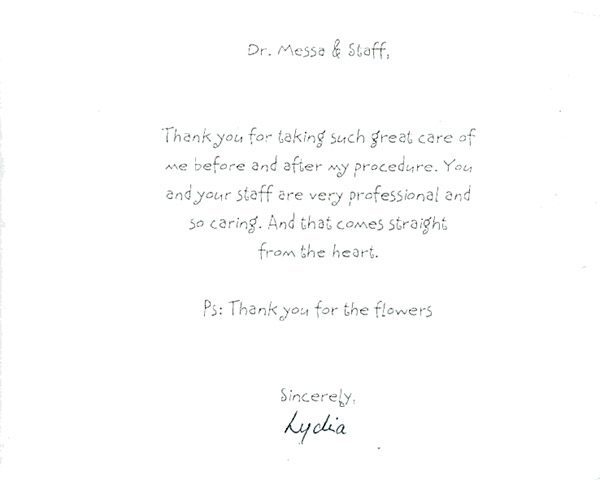 Dr. Messa & Staff,
Thank you for taking such great care of
me before and after my procedure. You
and your staff are very professional and
so caring. And that comes straight
from the heart.
Ps: Thank you for the flowers
Sincerely,
Lydia